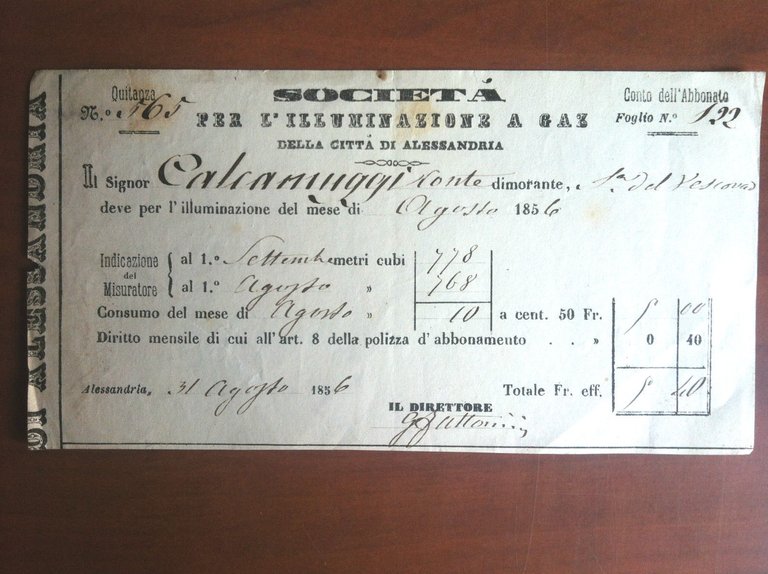 Quitanza
N.º 565
SOCIETÁ
PER L'ILLUMINAZIONE A GAZ
DELLA CITTÀ DI ALESSANDRIA
Conto dell'Abbonato
Foglio N.º 122
Il Signor Calcamuggi Conte dimorante, del Vescovado
deve per l'illuminazione del mese di Agosto 1856
Indicazione del Misuratore
al 1.º Settembre metri cubi 778
al 1.º Agosto » 768
Consumo del mese di Agosto » 10 a cent. 50 Fr. 5 00
Diritto mensile di cui all'art. 8 della polizza d'abbonamento . . » 0 40
Alessandria, 31 Agosto 1856 Totale Fr. eff. 5 40
IL DIRETTORE
DI ALESSANDRIA